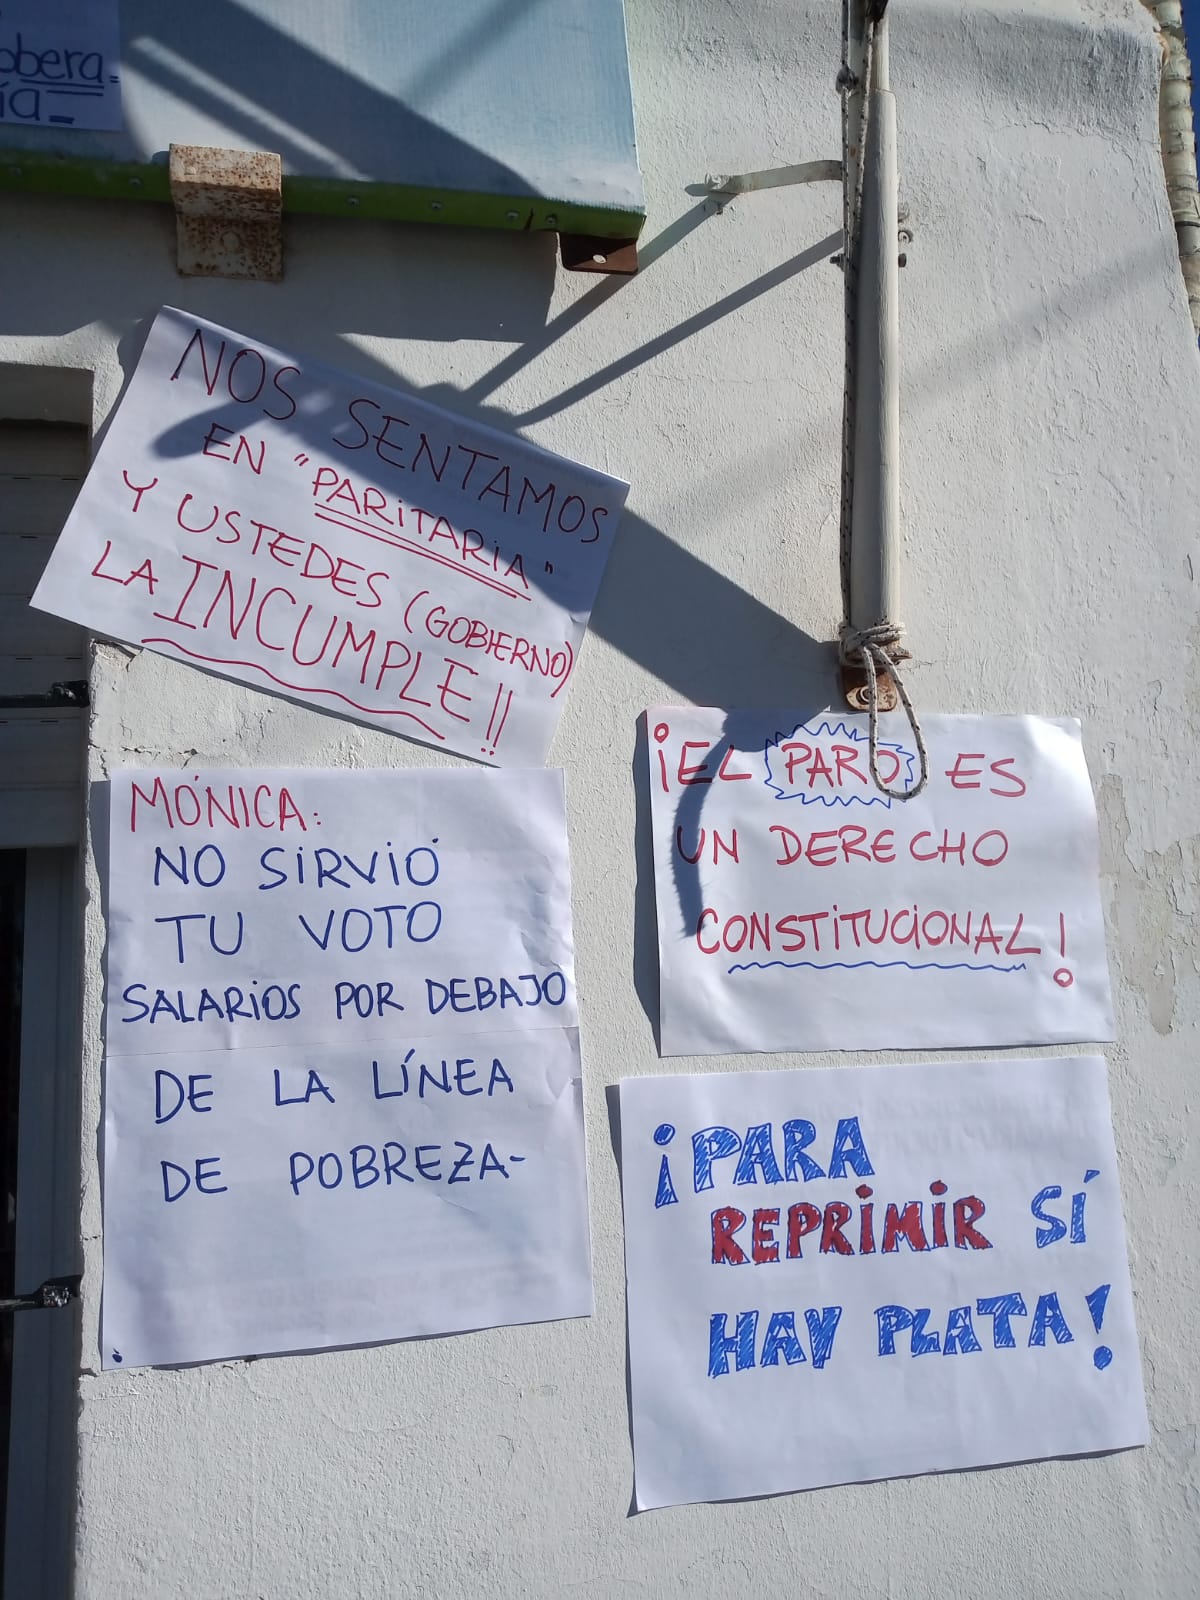 NOS SENTAMOS
EN "PARITARIA"
Y USTEDES (GOBIERNO)
LA INCUMPLE!!
MÓNICA:
NO SIRVIÓ
TU VOTO
SALARIOS POR DEBAJO
DE LA LÍNEA
DE POBREZA-
¡EL PARO ES
UN DERECHO
CONSTITUCIONAL!
¡PARA
REPRIMIR SÍ
HAY PLATA!